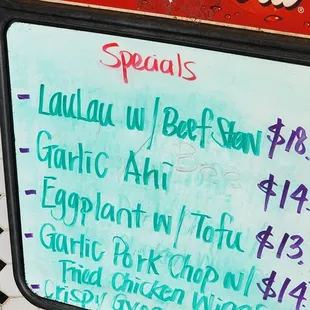 Specials
- LauLau w/ Beef Stew $18.
- Garlic Ahi $14.
- Eggplant w/ Tofu $13.
- Garlic Pork Chop w/ $14.
Fried Chicken Wings
- Crispy